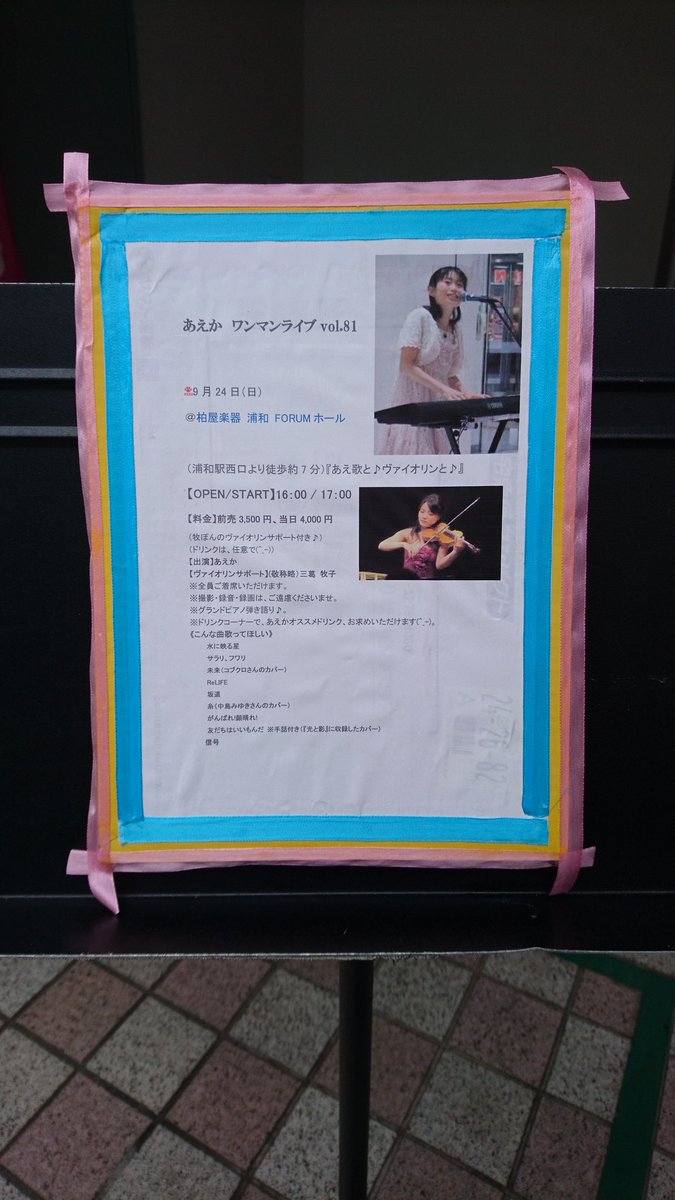 あえか ワンマンライブ vol.81
9月24日(日)
@柏屋楽器 浦和 FORUMホール
(浦和駅西口より徒歩約7分)『あえ歌と♪ヴァイオリンと♪』
【OPEN/START】16:00 / 17:00
【料金】前売 3,500円、当日 4,000円
(牧ぽんのヴァイオリンサポート付き♪)
(ドリンクは、任意で(^_-))
【出演】あえか
【ヴァイオリンサポート】(敬称略)三葛 牧子
※全員ご着席いただけます。
※撮影・録音・録画は、ご遠慮くださいませ。
※グランドピアノ弾き語り♪。
※ドリンクコーナーで、あえかオススメドリンク、お求めいただけます(^_-)。
《こんな曲歌ってほしい》
水に映る星
サラリ、フワリ
未来(コブクロさんのカバー)
ReLIFE
坂道
糸(中島みゆきさんのカバー)
がんばれ!顔晴れ!
友だちはいいもんだ ※手話付き(『光と影』に収録したカバー)
信号
YAMAHA